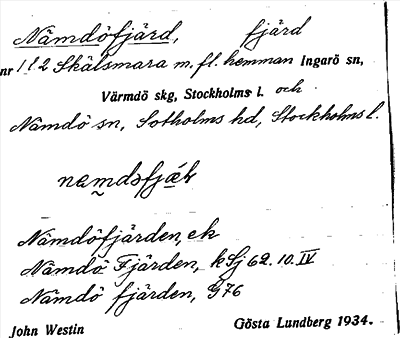 Nämdöfjärd, fjärd
nr 1 l 2 Skälsmara m. fl. hemman Ingarö sn,
Värmdö skg, Stockholms l. och
Nämdö sn, Sotholms hd, Stockholms l.
Nämdöfjärden, ek
Nämdö Fjärden, kSj 62. 10. IV
Nämdö fjärden, G76
John Westin Gösta Lundberg 1934.